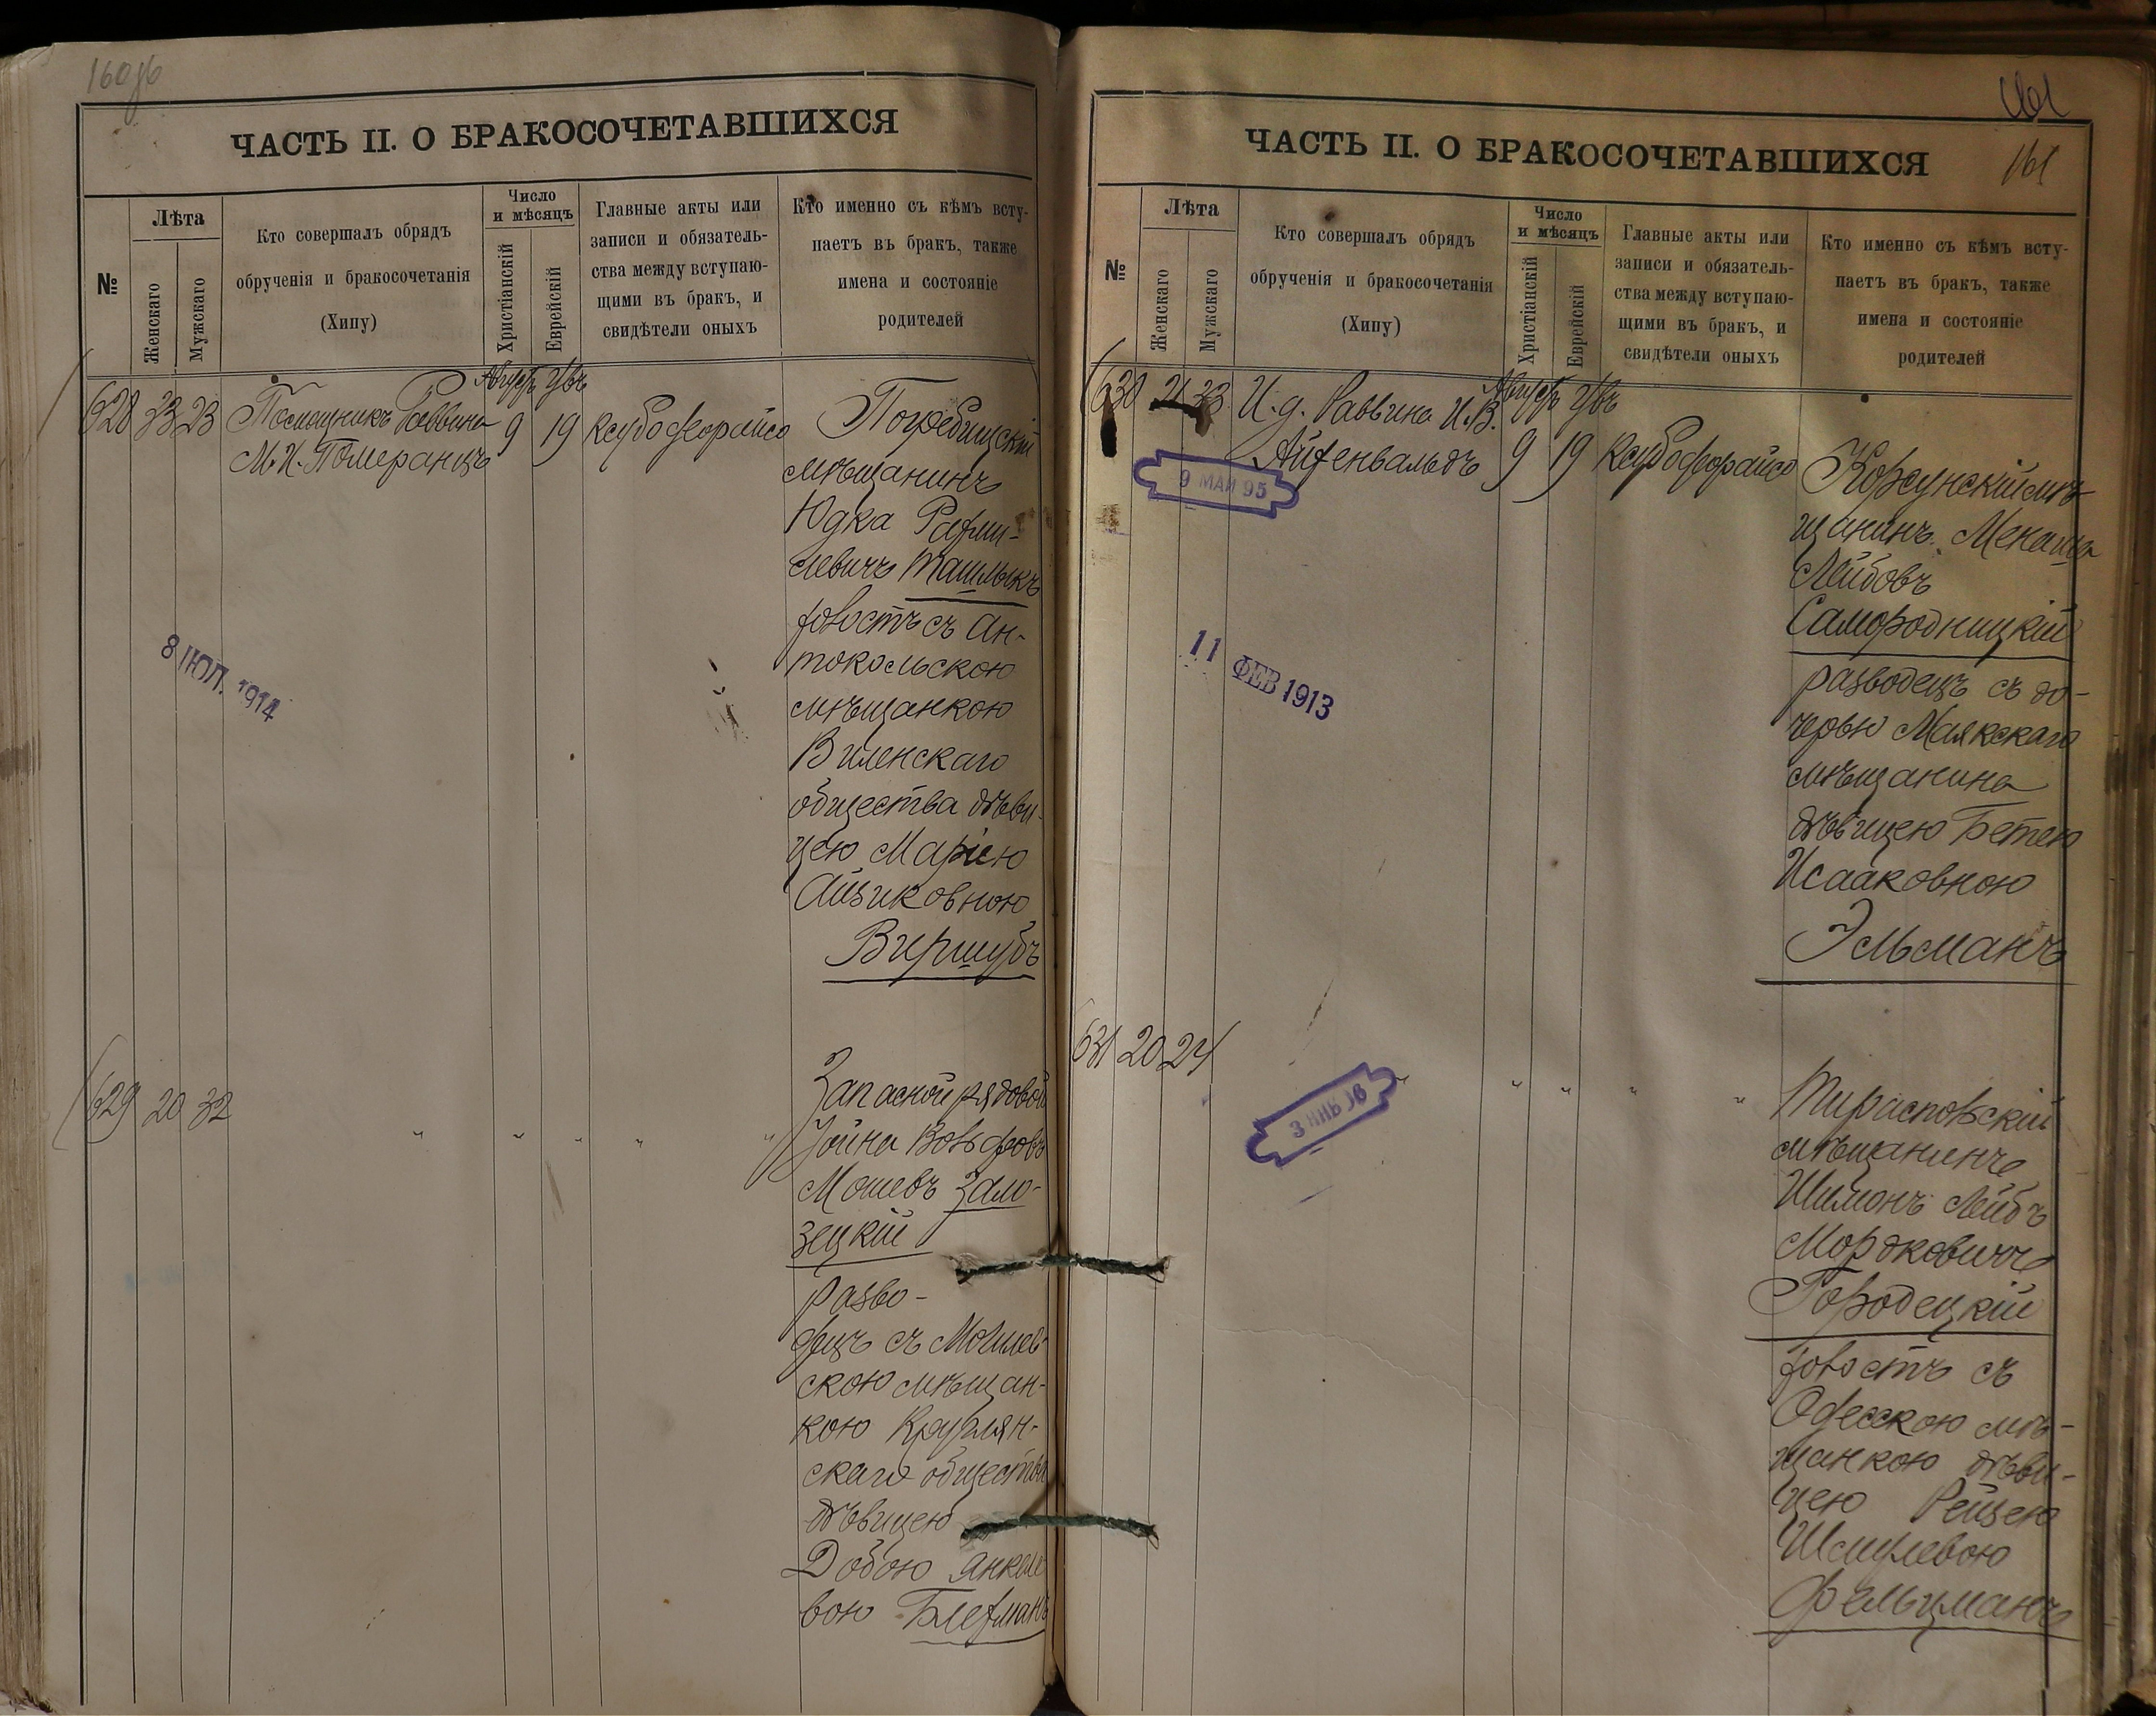 160об
ЧАСТЬ II. О БРАКОСОЧЕТАВШИХСЯ
№
Лѣта
Женскаго
Мужскаго
Кто совершалъ обрядъ
обрученія и бракосочетанія
(Хипу)
Число
и мѣсяцъ
Христіанскій
Еврейскій
Главные акты или
записи и обязатель-
ства между вступаю-
щими въ бракъ, и
свидѣтели оныхъ
Кто именно съ кѣмъ всту-
паетъ въ бракъ, также
имена и состояніе
родителей
628 23 23
Помощникъ Раввина
М. И. Померанцъ
Августъ
9 19
Погребищскій
мѣщанинъ
Юдка
левичъ Ташлыкъ
холостъ съ Ан-
токольскою
мѣщанкою
Виленскаго
общества дѣви-
цею Маріею
Айзиковною
Виршубъ
8 ІЮЛ. 1914
629 20 32
" " " " "
Запасной рядовой
Іойна Вольфовъ
Мошевъ Зало-
зецкій
разво-
децъ съ Могилев-
скою мѣщан-
кою Круглян-
скаго общества
дѣвицею
Добою Янкеле-
вою Блехманъ
161
161
ЧАСТЬ II. О БРАКОСОЧЕТАВШИХСЯ
№
Лѣта
Женскаго
Мужскаго
Кто совершалъ обрядъ
обрученія и бракосочетанія
(Хипу)
Число
и мѣсяцъ
Христіанскій
Еврейскій
Главные акты или
записи и обязатель-
ства между вступаю-
щими въ бракъ, и
свидѣтели оныхъ
Кто именно съ кѣмъ всту-
паетъ въ бракъ, также
имена и состояніе
родителей
630 21 33
И. д. Раввина И. В.
Айхенвальдъ
Августъ
9 19
9 МАЙ 95
11 ФЕВ 1913
Корсунскій мѣ-
щанинъ Мекаша
Лейбовъ
Самородницкій
разводецъ съ до-
черью Маякскаго
мѣщанина
дѣвицею Бетею
Исааковною
Эльманъ
631 20 24
" " " " "
Тираспольскій
мѣщанинъ
Шимонъ Лейбъ
Мордковичъ
Городецкій
холостъ съ
Одесскою мѣ-
щанкою дѣви-
цею Рейзею
Шмулевою
Фельцманъ